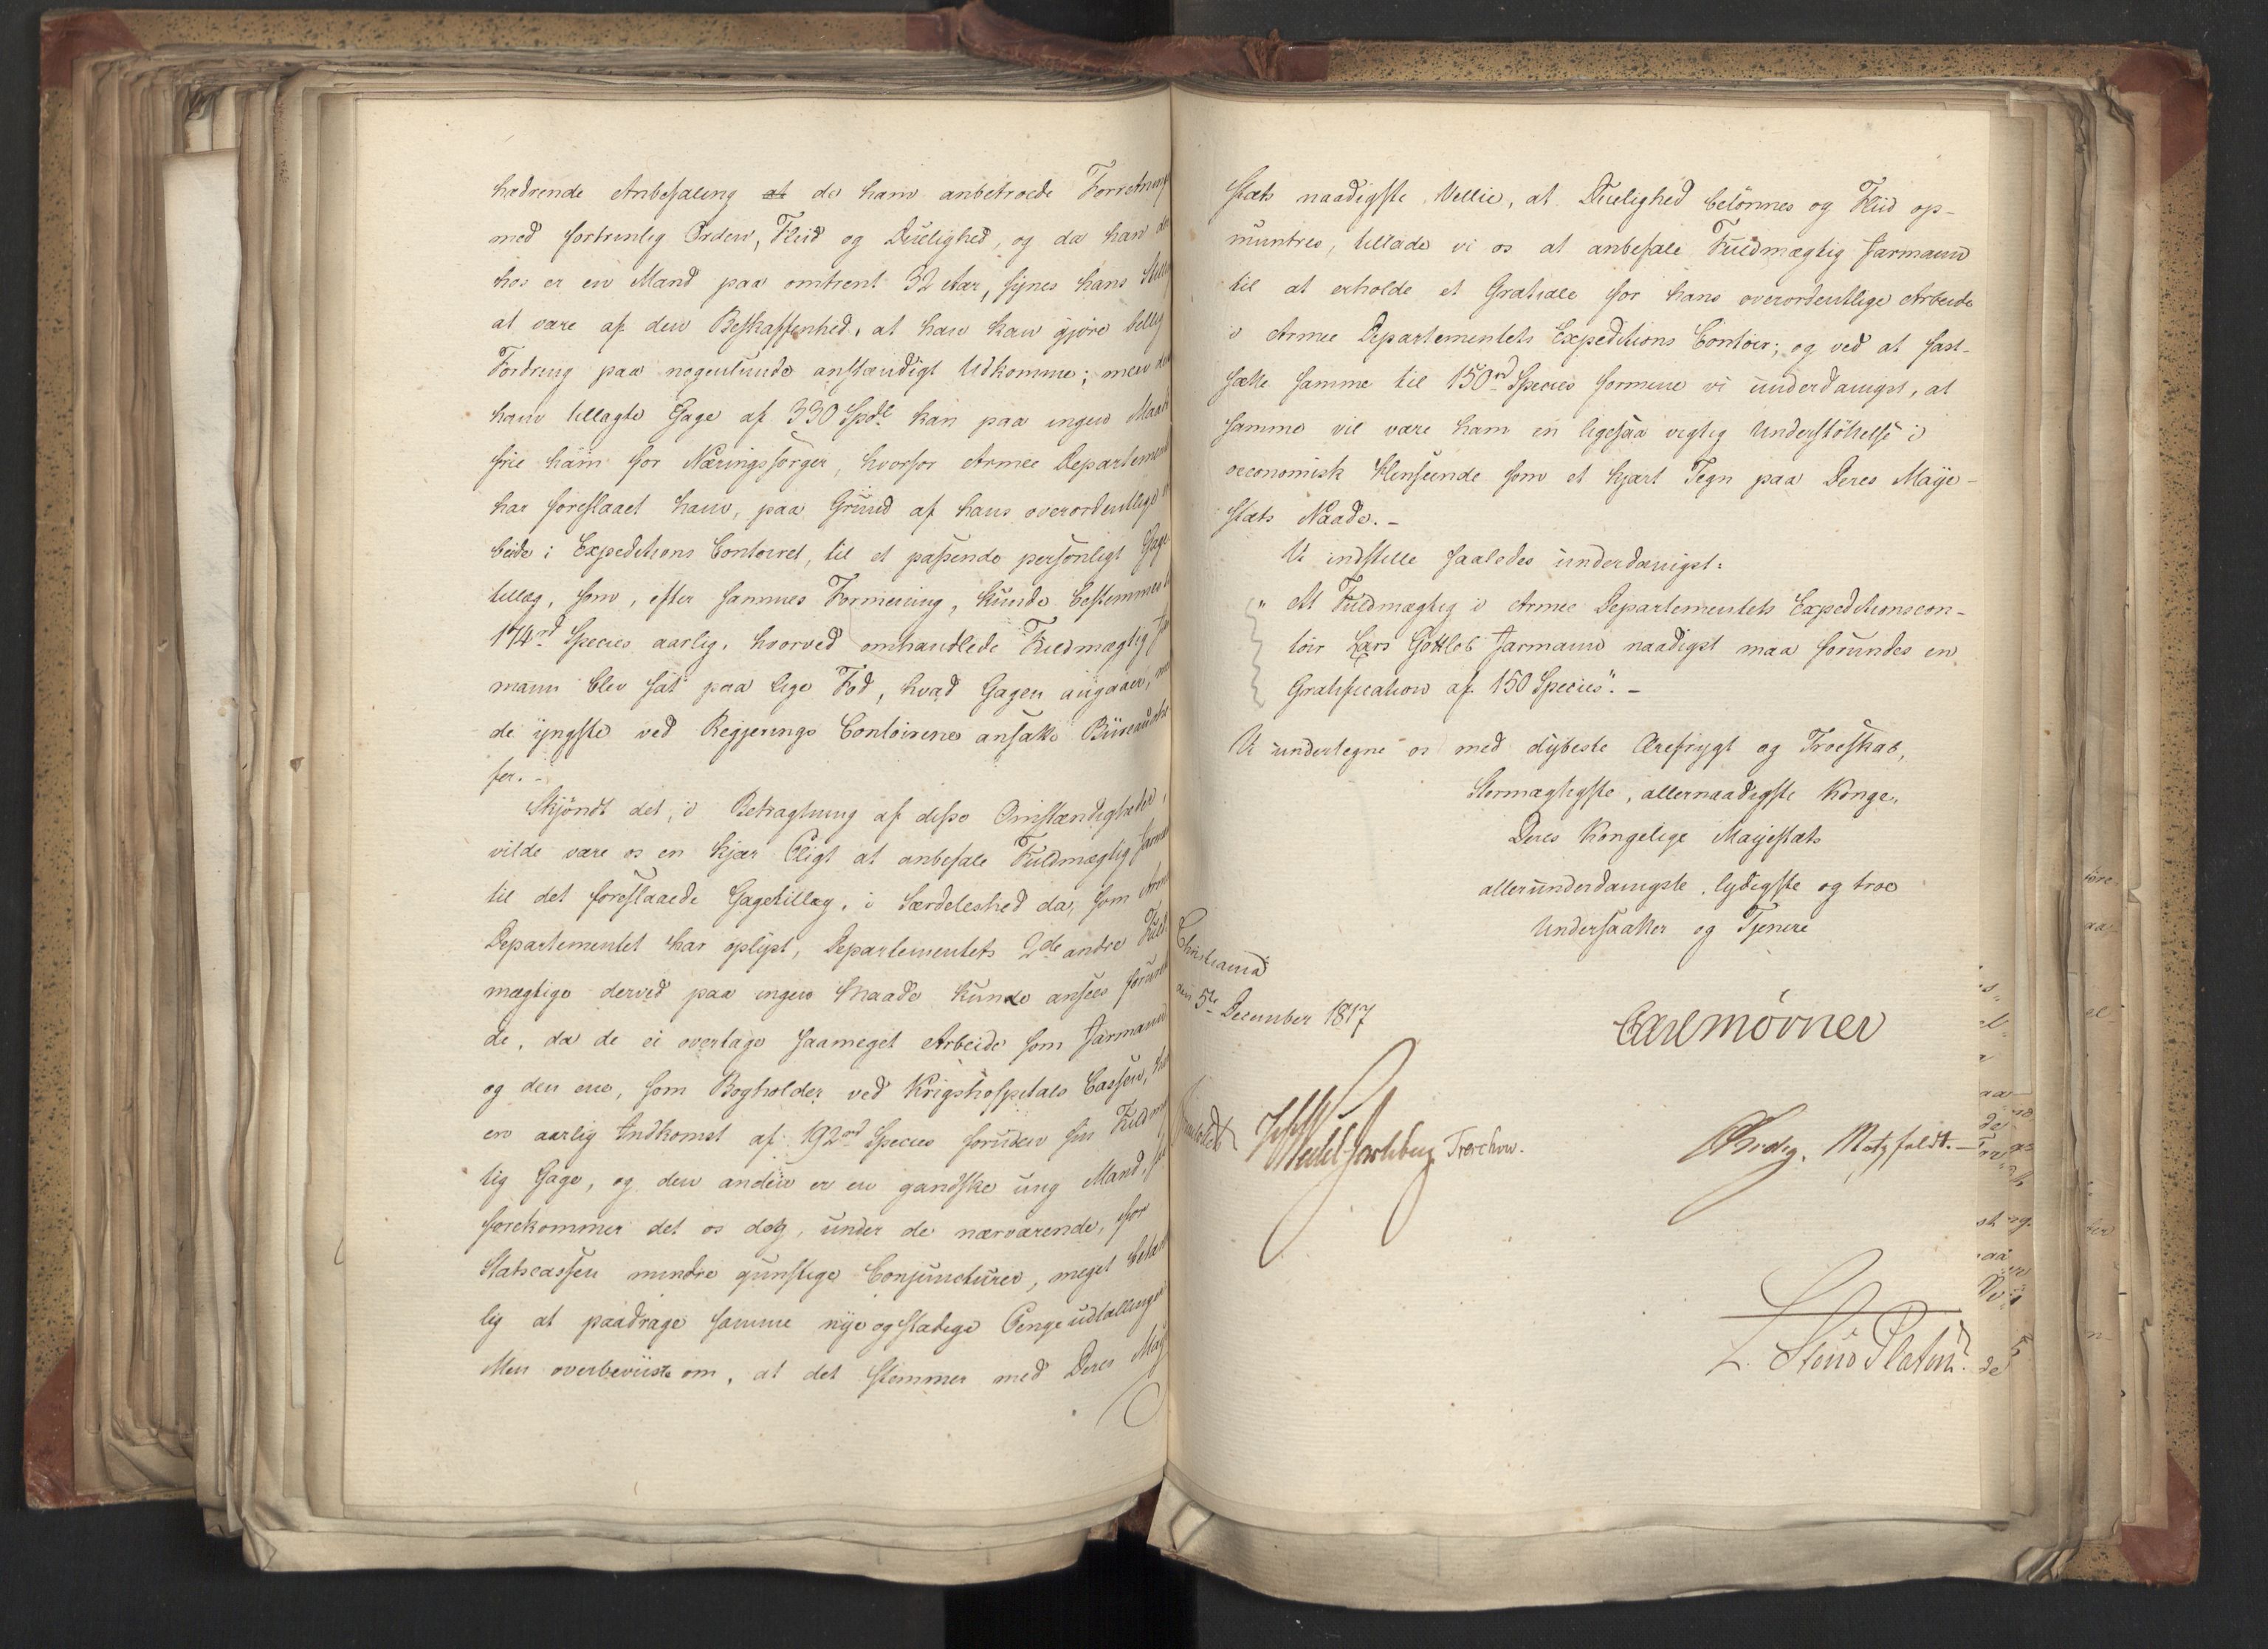 hædrende Anbefaling at de ham anbetroede Forretning
med fortrinlig Orden, Fliid og Duelighed, og da han
hos er en Mand paa omtrent 32 Aar, synes hans
at være af den Beskaffenhed, at han kan gjøre billig
Fordring paa nogenlunde anstændigt Udkomme; men
ham tillagte Gage af 330 Spdl kan paa ingen Maade
frie ham for Næringssorger, hvorfor Armee Departement
har foreslaaet ham, paa Grund af hans overordentlige
beide i Expeditions Contoiret, til et passende personligt Gage
tillæg, som, efter sammes Formening, kunde bestemmes
174rd Species aarlig, hvorved omhandlede Fuldmægtig
mann blev sat paa lige Fod, hvad Gagen angaaer,
de yngste ved Regjerings Contoirene ansatte Büreau
fer. -
Skjøndt det, i Betragtning af disse Omstændigheder,
vilde være os en kjær Pligt at anbefale Fuldmægtig
til det foreslaaede Gagetillæg, i Særdeleshed da, som
Departementet har oplyst, Departementets 2de andre
mægtige derved paa ingen Maade kunde ansees
de, da de ei overtage saameget Arbeide som Jarmann
og den ene, som Bogholder ved Krigshospitals Cassen,
en aarlig Indkomst af 192rd Species foruden sin
tig Gage, og den anden er en gandske ung Mand,
forekommer det os dog, under de nærværende, for
Statscassen mindre gunstige Conjuncturer, meget
lig at paadrage samme nye og stadige Pengeudtællinger
Men overbeviiste om, at det stemmer med Deres Maj
stæts naadigste Villie, at Duelighed belönnes og Fliid op-
muntres, tillade vi os at anbefale Fuldmægtig Jarmann
til at erholde et Gratiale for hans overordentlige Arbeide
i Armee Departementets Expeditions Contoir; og ved at fast-
sætte samme til 150rd Species formene vi underdanigst, at
samme vil være ham en ligesaa vigtig Understöttelse i
oeconomisk Henseende som et kjært Tegn paa Deres Maje-
stæts Naade. -
Vi indstille saaledes underdanigst:
"At Fuldmægtig i Armee Departementets Expeditionscon-
toir Lars Gottlob Jarmann naadigst maa forundes en
Gratification af 150 Species". -
Vi undertegne os med dybeste Ærefrygt og Troeskab,
Stormægtigste, allernaadigste Konge,
Deres Kongelige Majestæts
allerunderdanigste, lydigste og troe
Undersaatter og Tjenere
Christiania
den 5te December 1817
Carl Mörner
Wedel Jarlsberg Treschow. Motzfeldt. -